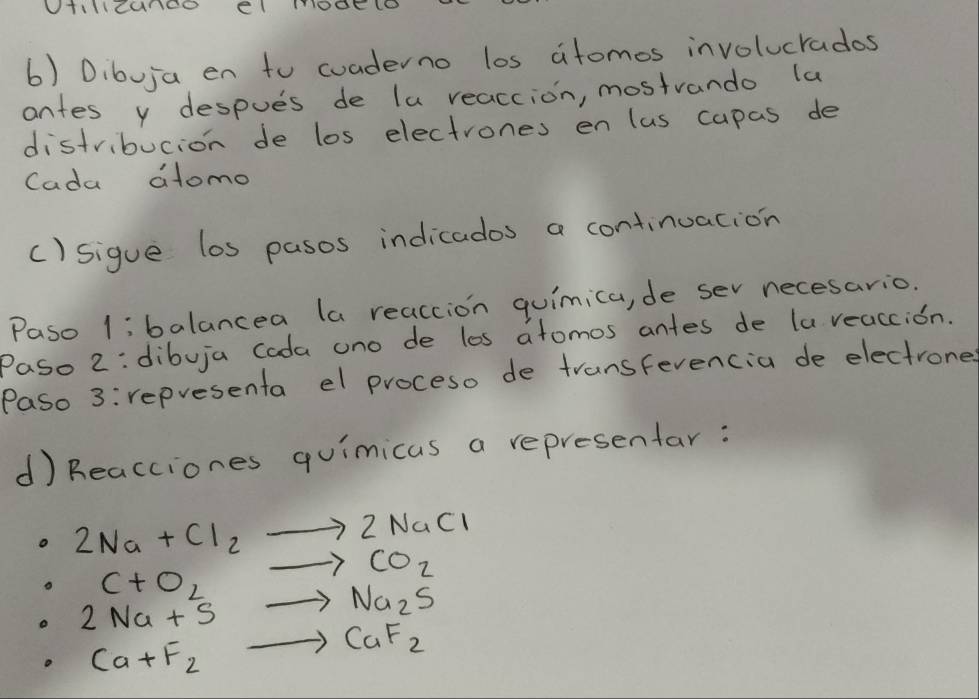 Utilizando el modelo
b) Dibuja en tu cuaderno los átomos involucrados
antes y después de la reacción, mostrando la
distribución de los electrones en las capas de
Cada átomo
c) sigue los pasos indicados a continuación
Paso 1: balancea la reacción química, de ser necesario.
Paso 2: dibuja cada uno de los átomos antes de la reacción.
Paso 3: representa el proceso de transferencia de electrones
d) Reacciones químicas a representar:
• 2Na + Cl₂ → 2NaCl
• C + O₂ → CO₂
• 2Na + S → Na₂S
• Ca + F₂ → CaF₂